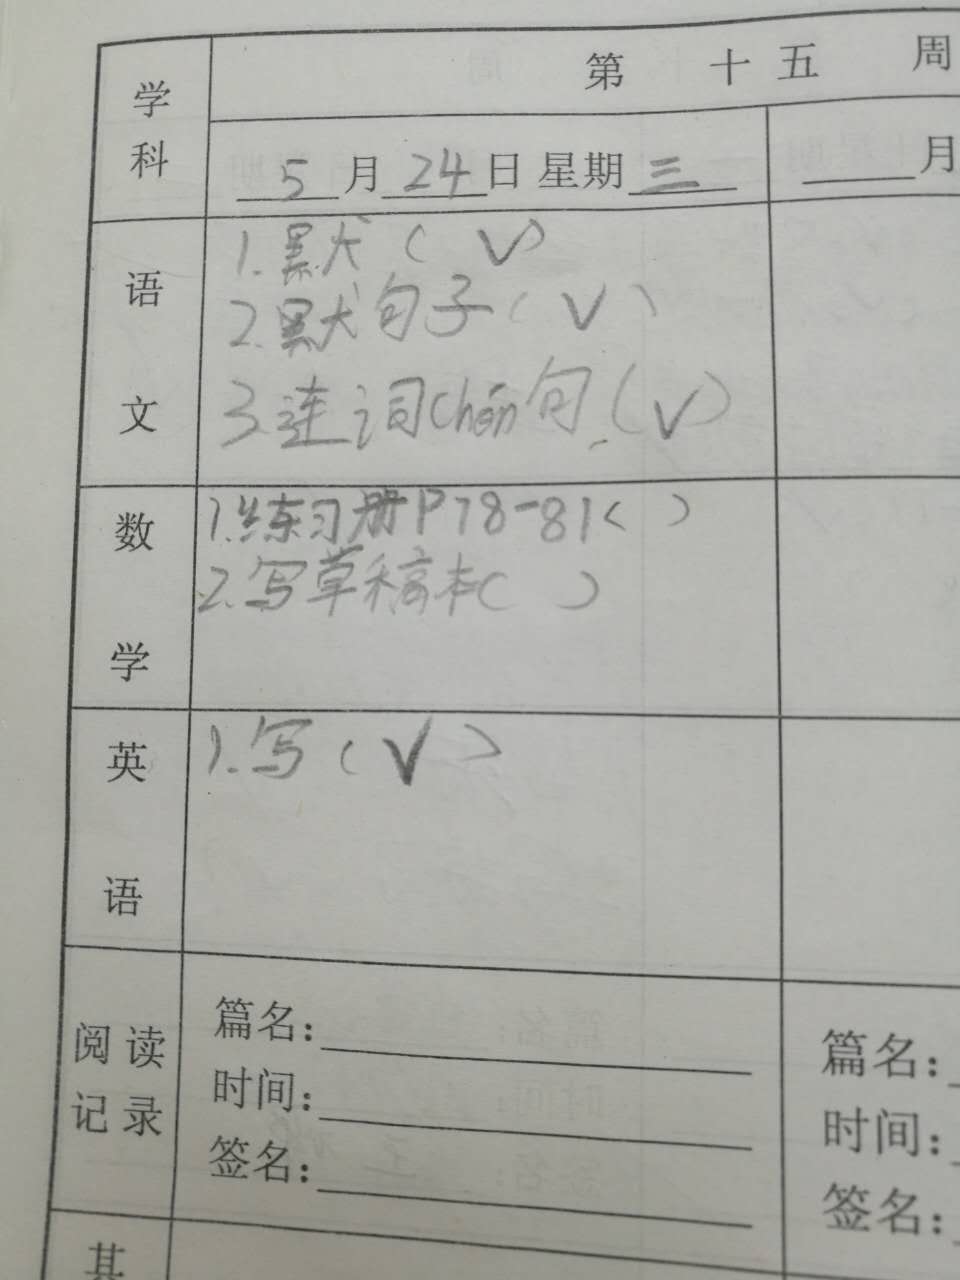 学科
第 十五 周
5月24日 星期三
月
语文
1.默（√）
2.默句子（√）
3.连词chén句.（√）
数学
1.练习册P78-81（ ）
2.写草稿本（ ）
英语
1.写（√）
阅读记录
篇名：
时间：
签名：
篇名：
时间：
签名：
其